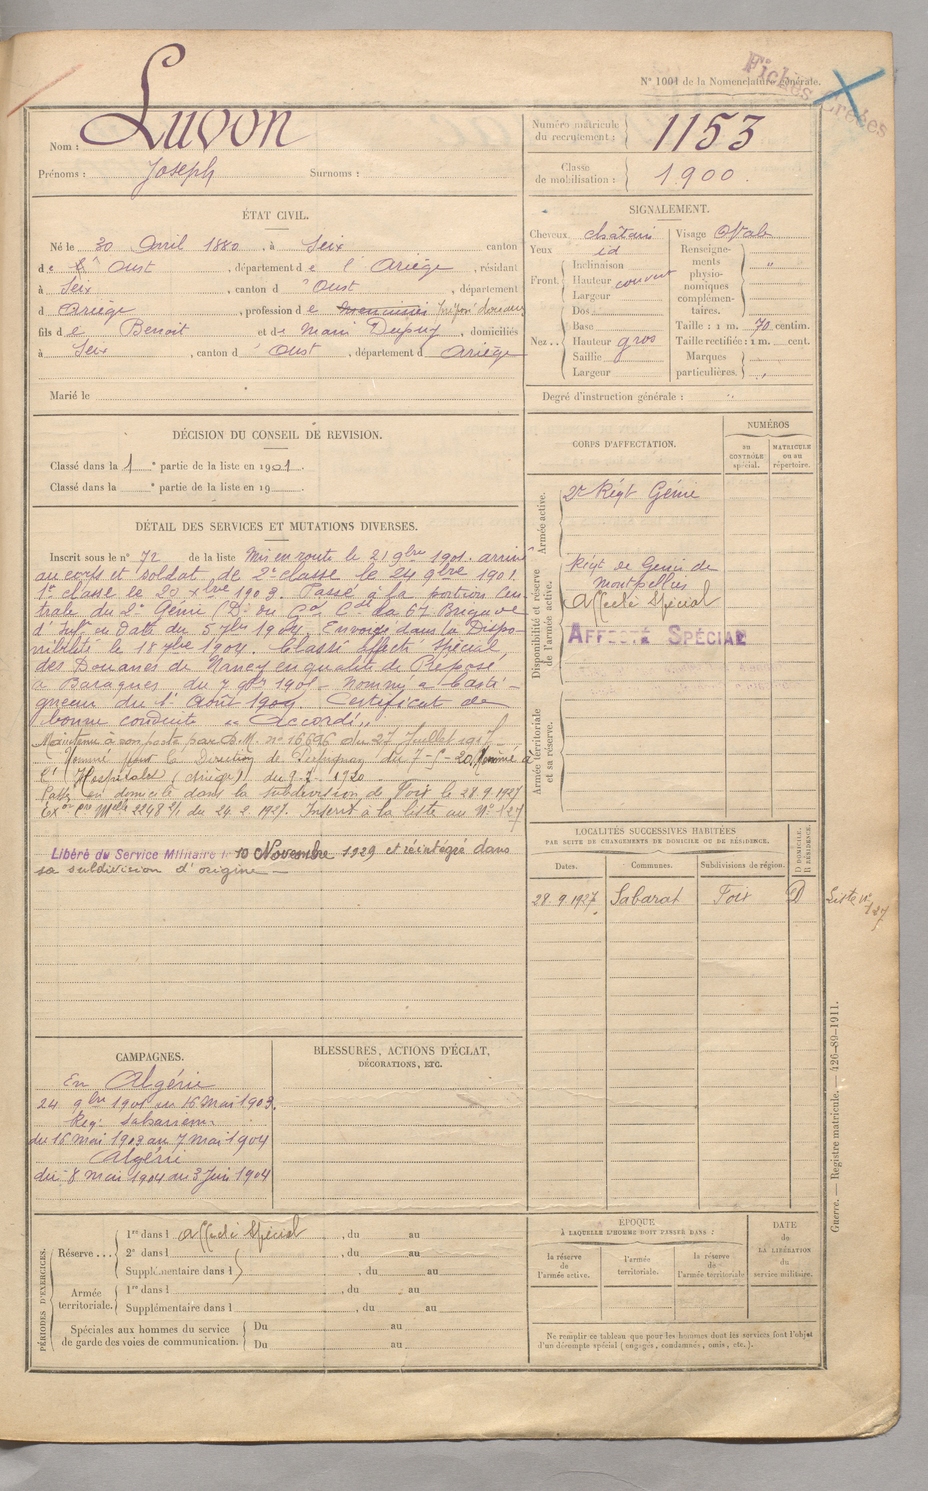 N° 1001 de la Nomenclature générale.
Fiches Créées
Nom : Luvon
Prénoms : Joseph Surnoms :
Numéro matricule du recrutement : 1153
Classe de mobilisation : 1900.
ÉTAT CIVIL.
Né le 30 Avril 1880, à Seix canton
de Oust, département de l'Ariège, résidant
à Seix, canton d'Oust, département
d Ariège, profession de menuisier
fils de Benoit et de Marie Dupuy, domiciliés
à Seix, canton d'Oust, département d Ariège
Marié le
SIGNALEMENT.
Cheveux châtain
Yeux id
Front. Inclinaison
Hauteur couvert
Largeur
Nez.. Dos
Base
Hauteur gros
Saillie
Largeur
Visage Ovale
Renseignements physionomiques complémentaires. "
Taille : 1 m. 70 centim.
Taille rectifiée : 1 m. cent.
Marques particulières. "
Degré d'instruction générale : "
DÉCISION DU CONSEIL DE REVISION.
Classé dans la 1e partie de la liste en 1901.
Classé dans la e partie de la liste en 19
CORPS D'AFFECTATION.
NUMÉROS
au CONTRÔLE spécial.
MATRICULE ou au répertoire.
Armée active.
2e Régt Génie
Disponibilité et réserve de l'armée active.
Régt de Génie de
Montpellier
Affecté Spécial
AFFECTÉ SPÉCIAL
Armée territoriale et sa réserve.
DÉTAIL DES SERVICES ET MUTATIONS DIVERSES.
Inscrit sous le n° 72 de la liste Mis en route le 21 9bre 1901. arrivé
au corps et soldat de 2e classe le 24 9bre 1901.
1e classe le 20 Xbre 1903. Passé à la portion Cen-
trale du 2e Génie (Don du Gal Cdt la 67 Brigade
d'Infie en date du 5 7bre 1904. Envoyé dans la Dispo-
nibilité le 18 7bre 1904. Classé Affecté Spécial,
des Douanes de Nancy en qualité de Préposé
à Baragnes du 7 1905 - Nommé à Casti-
gneau du 1er Août 1909. Certificat de
bonne conduite " Accordé "
Maintenu à son poste par D.M. n° 16696 du 27 Juillet 1917
Nommé pour la Direction de Perpignan du 7-5-20. Nommé à
l'Hospitalet (Ariège) du 9.2.1920
Passé en domicile dans la subdivision de Foix le 28.9.1927
2248 2/1 du 24.2.1927. Inscrit à la liste au N° 127
Libéré du Service Militaire le 10 Novembre 1929 et réintégré dans
sa subdivision d'origine -
LOCALITÉS SUCCESSIVES HABITÉES
PAR SUITE DE CHANGEMENTS DE DOMICILE OU DE RÉSIDENCE.
Dates. Communes. Subdivisions de région. D DOMICILE. R RÉSIDENCE.
28.9.1927 Sabarat Foix D Liste n° 127
CAMPAGNES.
En Algérie
24 9bre 1901 au 16 Mai 1903.
du 16 Mai 1903 au 7 Mai 1904
Algérie
du 8 Mai 1904 au 3 Juin 1904
BLESSURES, ACTIONS D'ÉCLAT,
DÉCORATIONS, ETC.
PÉRIODES D'EXERCICES.
Réserve ... 1re dans l Affecté Spécial, du au
2e dans l, du au
Supplémentaire dans l, du au
Armée territoriale. 1re dans l, du au
Supplémentaire dans l, du au
Spéciales aux hommes du service de garde des voies de communication. Du au
Du au
ÉPOQUE
À LAQUELLE L'HOMME DOIT PASSER DANS :
la réserve de l'armée active.
l'armée territoriale.
la réserve de l'armée territoriale
DATE de LA LIBÉRATION du service militaire.
Ne remplir ce tableau que pour les hommes dont les services font l'objet
d'un décompte spécial (engagés, condamnés, omis, etc.).
Guerre. — Registre matricule. — 426-89-1911.